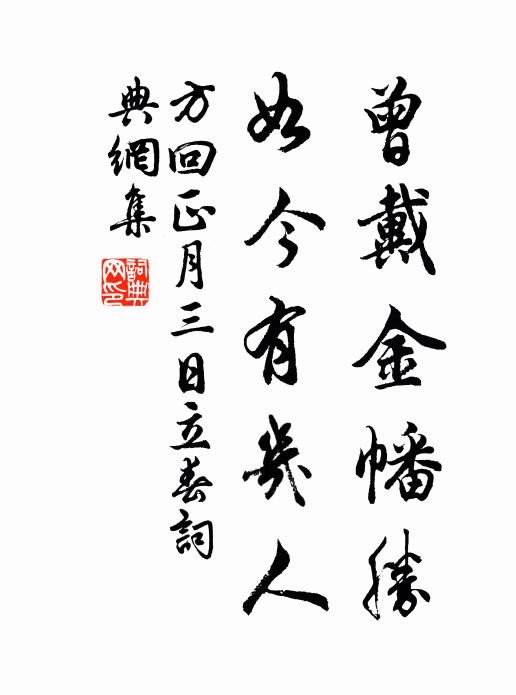 曾戴金幡勝
如今有幾人
方回正月三日立春詞
典網集
詞典網印